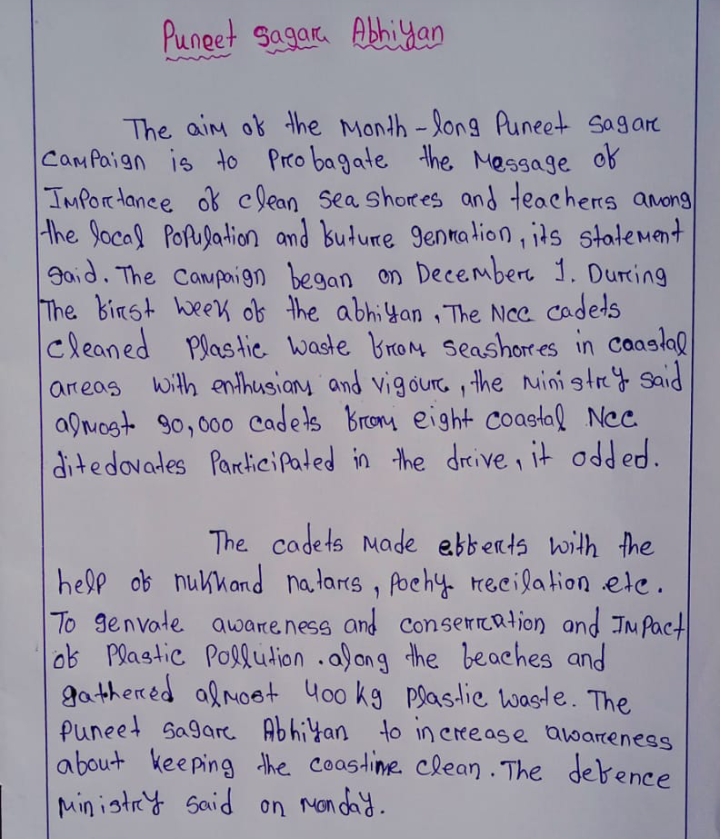 Puneet Sagar Abhiyan
The aim of the Month-long Puneet Sagar
Campaign is to Probagate the Message of
Importance of clean sea shores and teachers among
the local Population and future genration, its statement
said. The campaign began on December 1. During
The first week of the abhiyan, The Ncc cadets
cleaned Plastic waste from seashores in coastal
areas with enthusiam and vigour, the ministry said
almost 90,000 cadets from eight coastal Ncc
ditedovates Participated in the drive, it odded.
The cadets made efferts with the
help of nukkand natars, Pochy recilation etc.
To genvate awareness and conserration and Impact
of Plastic Pollution. along the beaches and
gathered almost 400 kg plastic waste. The
Puneet Sagar Abhiyan to increase awareness
about keeping the coastine clean. The defence
Ministry said on Monday.